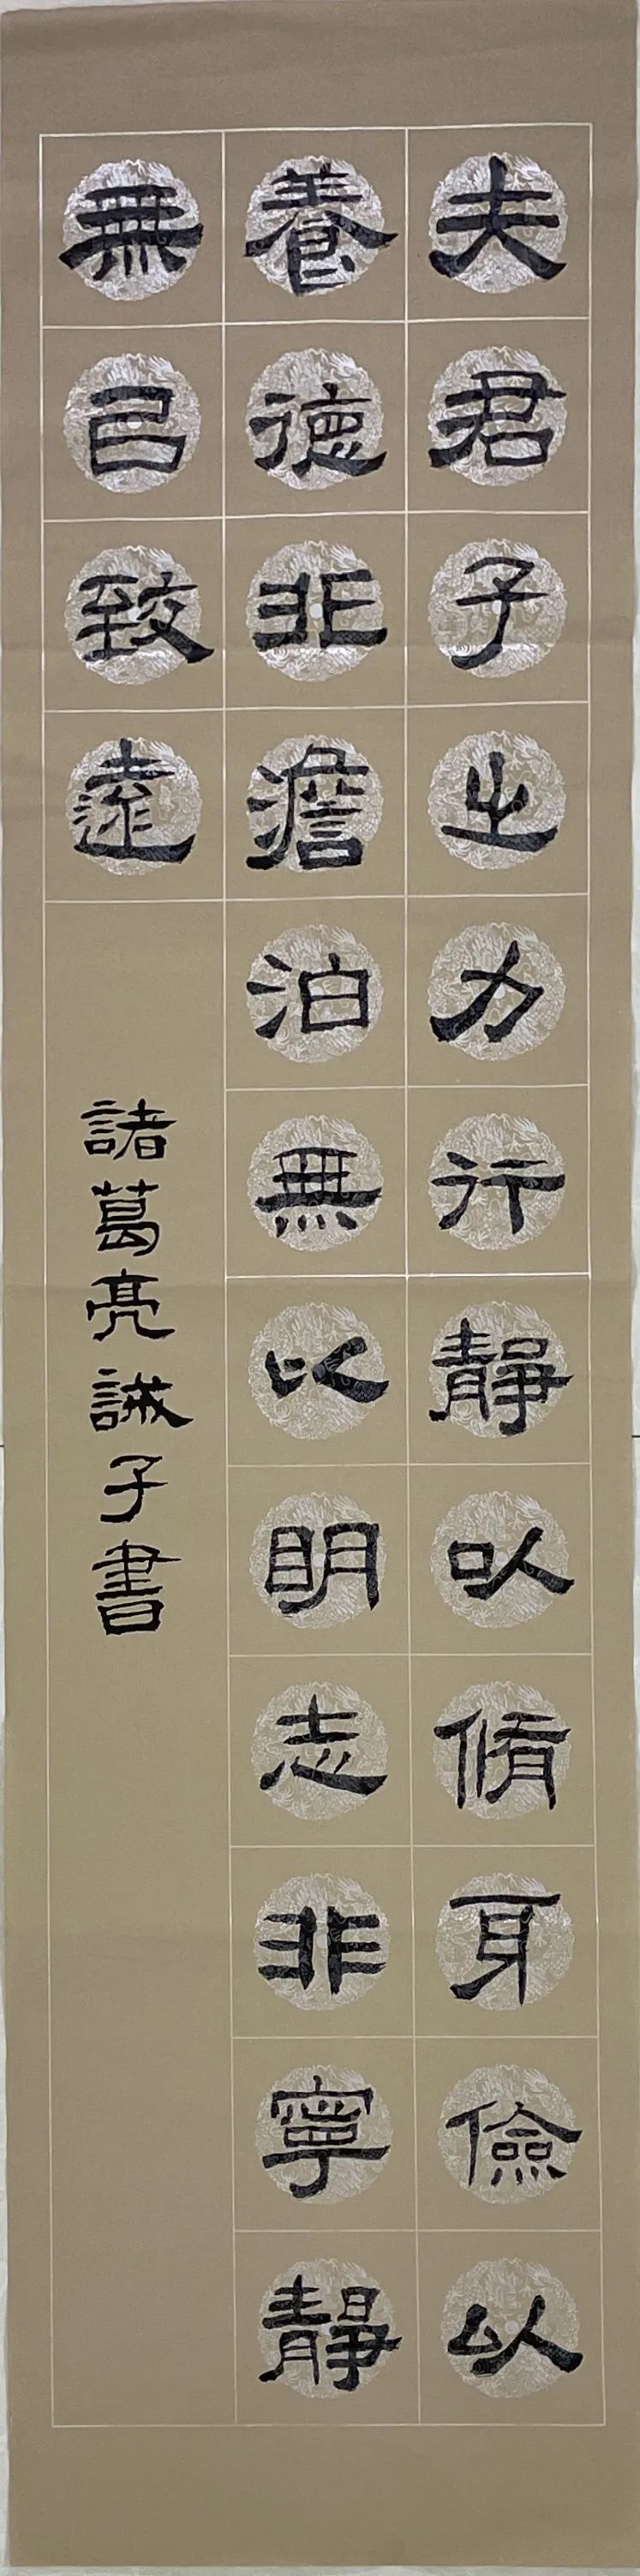 夫君子之力行靜以脩耳儉以
養德非澹泊無以明志非寧靜
無㠯致遠
諸葛亮誡子書